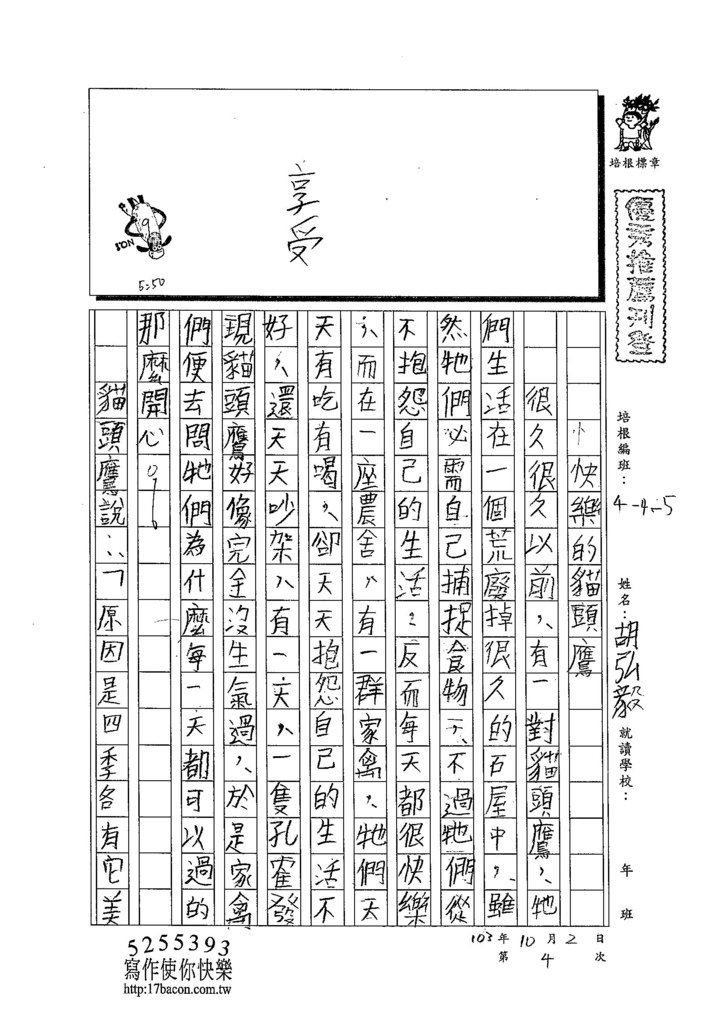 享受
SON
5:50
培根標章
優秀推薦刊登
培根編班：4-4-5
姓名：胡弘毅
就讀學校：
年 班
快樂的貓頭鷹
很久很久以前，有一對貓頭鷹，牠
們生活在一個荒廢掉很久的石屋中，雖
然牠們必需自己捕捉食物，不過牠們從
不抱怨自己的生活，反而每天都很快樂
，而在一座農舍，有一群家禽，牠們天
天有吃有喝，卻天天抱怨自己的生活不
好，還天天吵架，有一天，一隻孔雀發
現貓頭鷹好像完全沒生氣過，於是家禽
們便去問牠們為什麼每一天都可以過的
那麼開心？
貓頭鷹說：「原因是四季各有它美
103年10月2日
第4次
5255393
寫作使你快樂
http:17bacon.com.tw